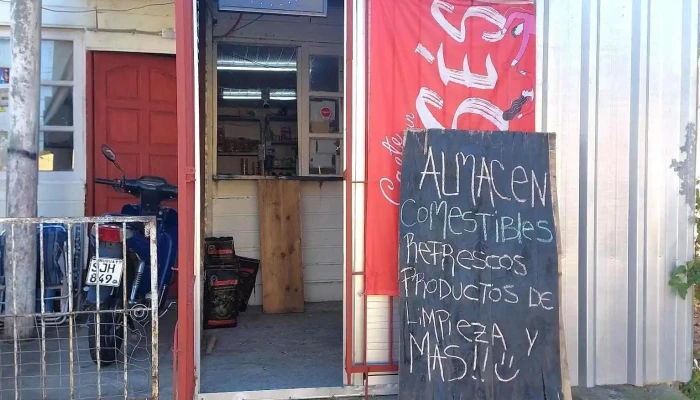 ALMACEN
COMESTIBLES
REFRESCOS
PRODUCTOS DE
LIMPIEZA Y
MAS!!
SJH
849